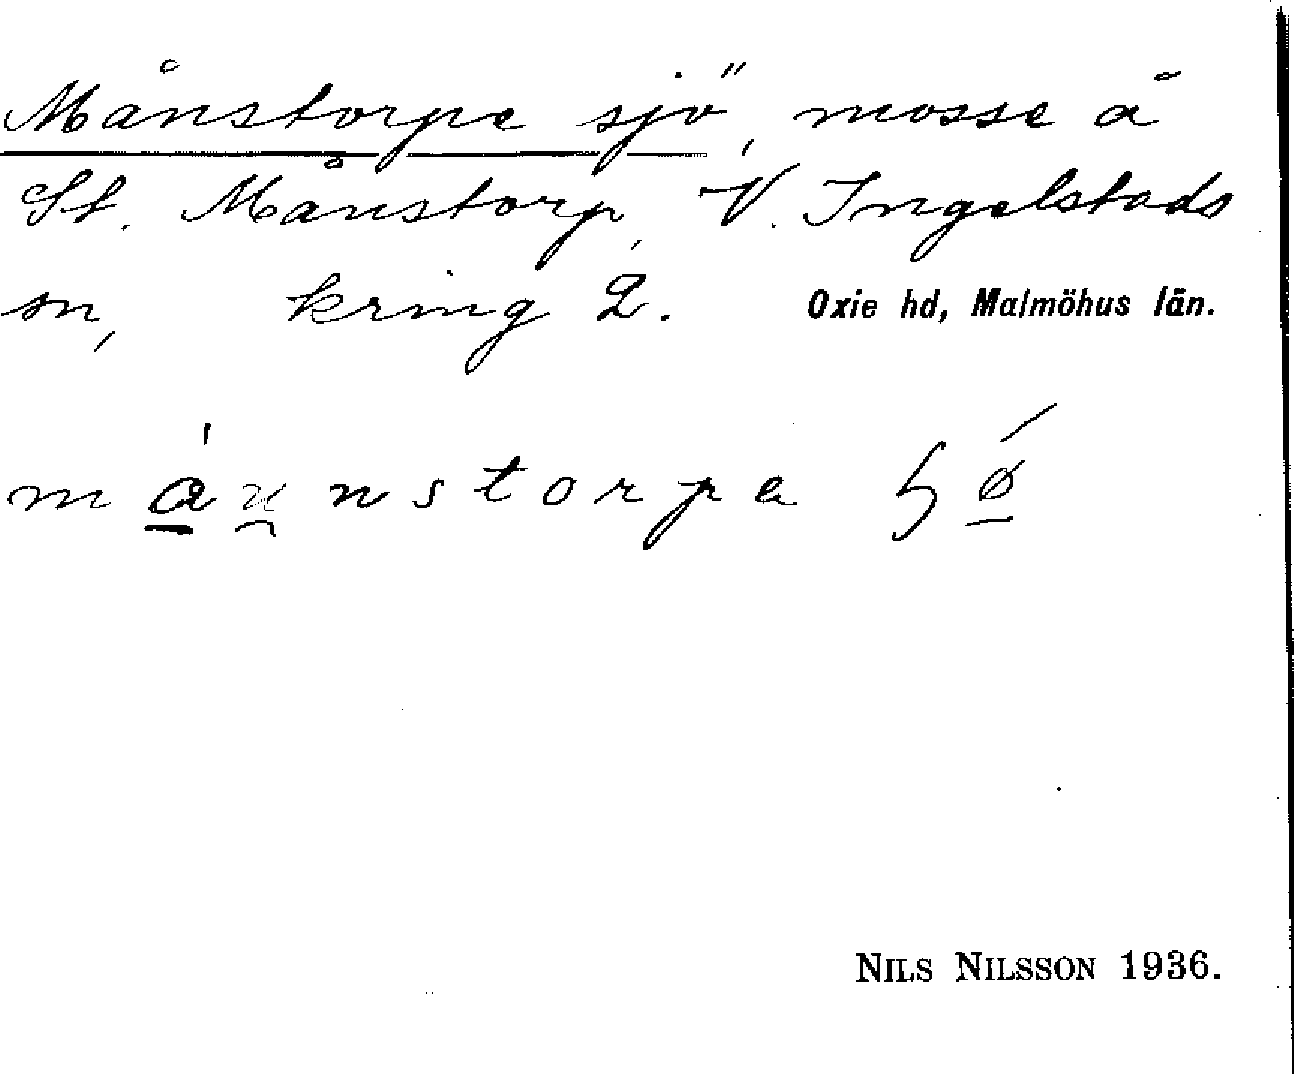 Månstorps sjö, mosse å
St. Månstorp, V. Ingelstads
sn, kring 2. Oxie hd, Malmöhus län.
máu̯nstorpa
NILS NILSSON 1936.